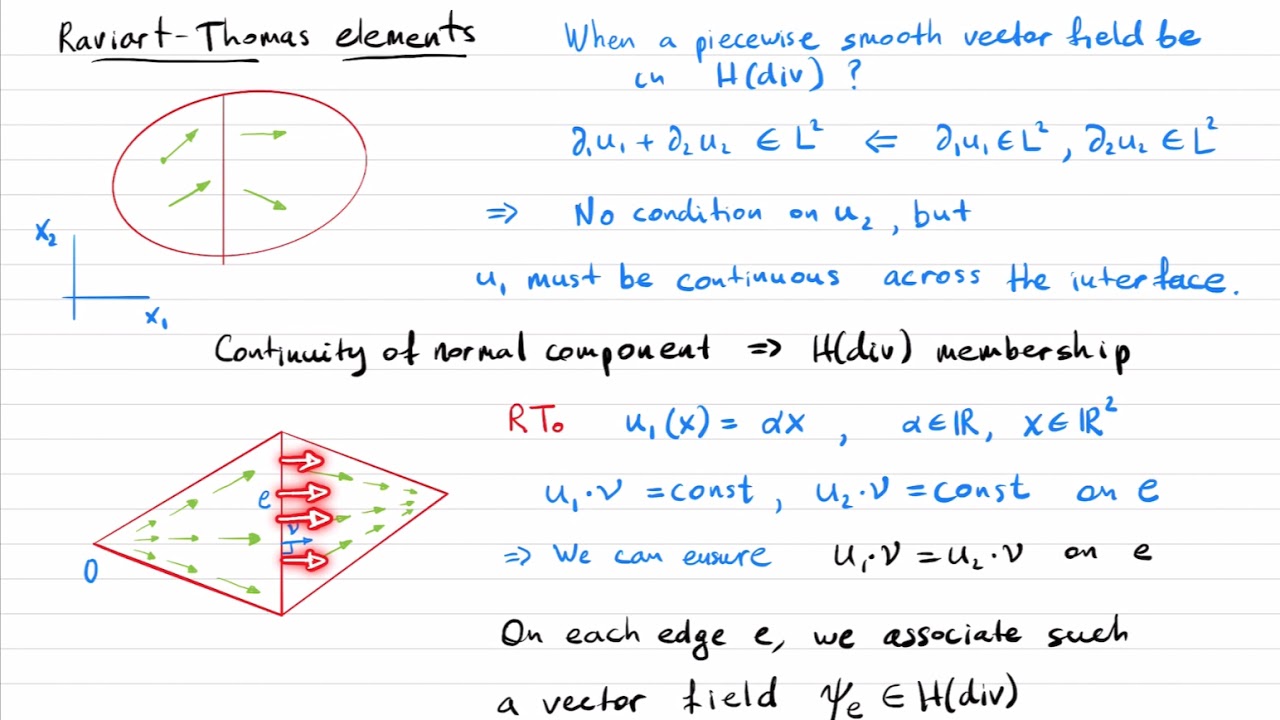 Raviart-Thomas elements
When a piecewise smooth vector field be
in H(div) ?
∂₁u₁ + ∂₂u₂ ∈ L² ⇐ ∂₁u₁ ∈ L², ∂₂u₂ ∈ L²
⇒ No condition on u₂, but
u₁ must be continuous across the interface.
x₂
x₁
Continuity of normal component ⇒ H(div) membership
RT₀ u₁(x) = αx , α ∈ ℝ, x ∈ ℝ²
e
ν
0
u₁·ν = const , u₂·ν = const on e
⇒ We can ensure u₁·ν = u₂·ν on e
On each edge e, we associate such
a vector field ψₑ ∈ H(div)